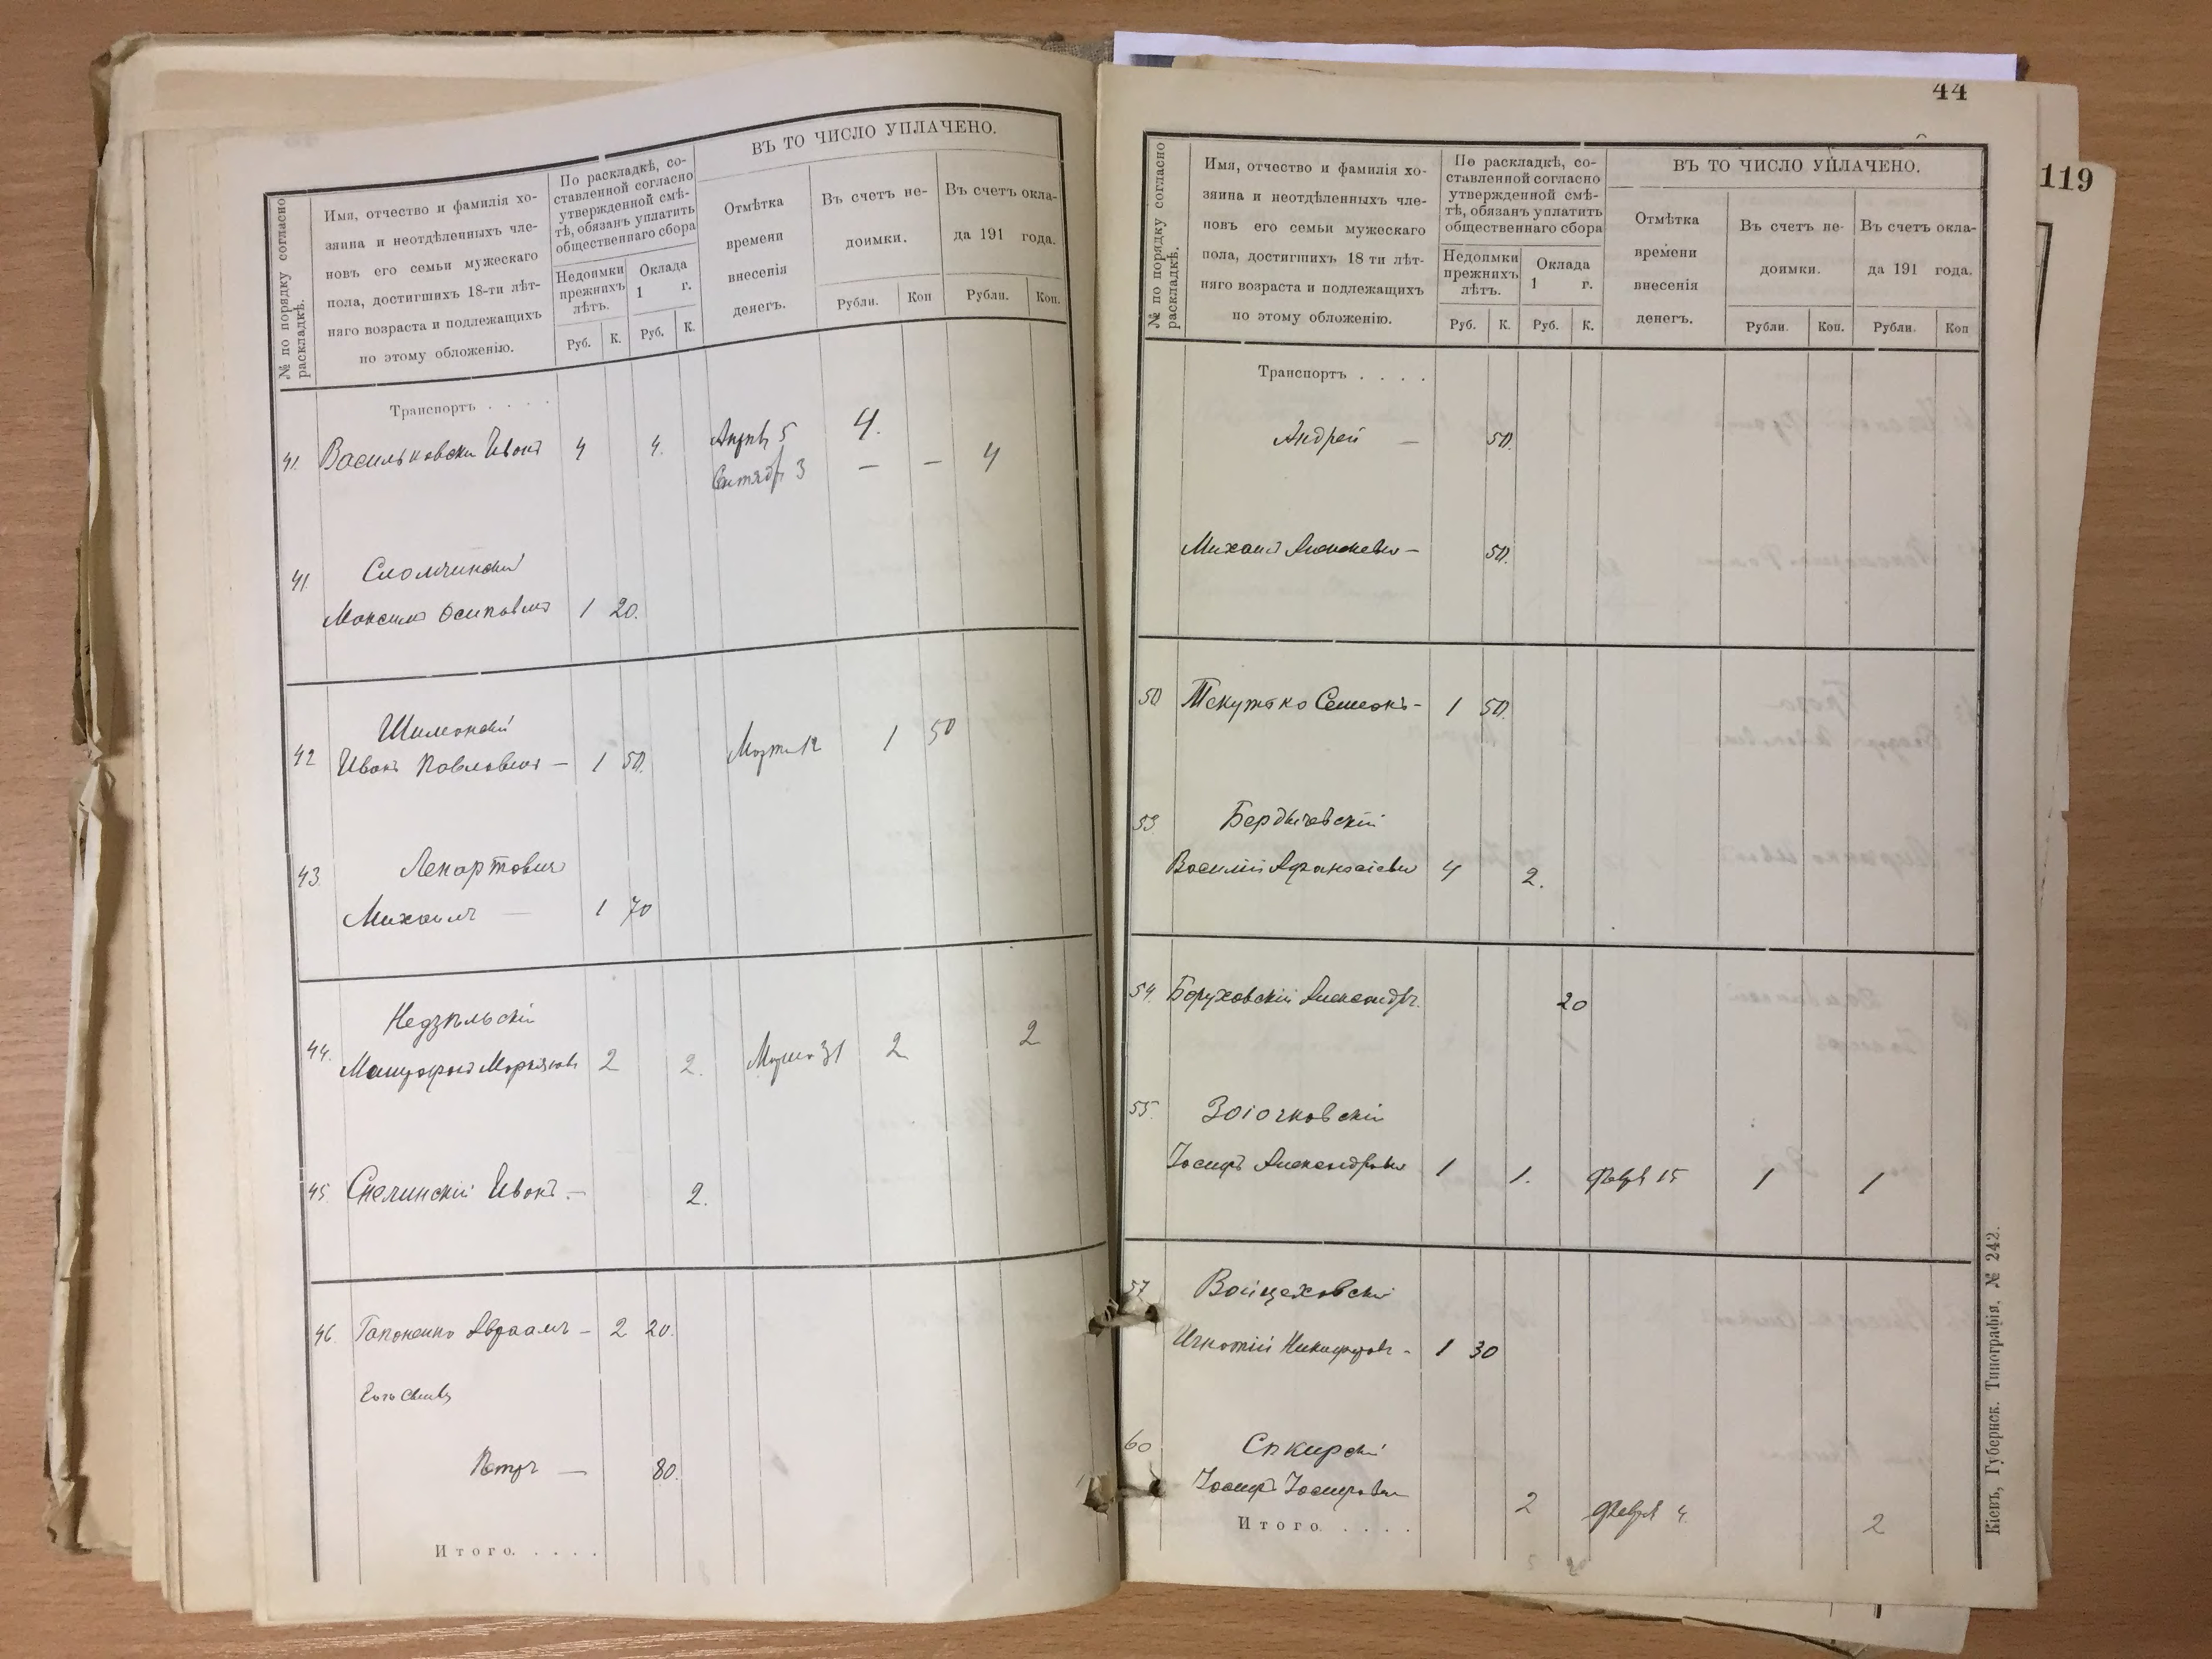 № по порядку согласно раскладкѣ.
Имя, отчество и фамилія хо-
зяина и неотдѣленныхъ чле-
новъ его семьи мужескаго
пола, достигшихъ 18-ти лѣт-
няго возраста и подлежащихъ
по этому обложенію.
По раскладкѣ, со-
ставленной согласно
утвержденной смѣ-
тѣ, обязанъ уплатить
общественнаго сбора
Недоимки
прежнихъ
лѣтъ.
Оклада
1 г.
Руб. К. Руб. К.
ВЪ ТО ЧИСЛО УПЛАЧЕНО.
Отмѣтка
времени
внесенія
денегъ.
Въ счетъ не-
доимки.
Въ счетъ окла-
да 191 года.
Рубли. Коп Рубли. Коп.
Транспортъ . . . .
41. Васильковскій Иванъ 4 4. Апрѣль 5 4.
Сентябр 3 — — 4
41.
Максимъ Осиповичъ 1 20.
42 Шимонскій
Иванъ Павловичъ — 1 50. Марта 12 1 50
43 Ленартовичъ
Михаилъ — 1 70
44. Недзѣльскій
2 2. 31 2 2
45. Иванъ — 2.
46. Гапоненко Авраамъ — 2 20.
Его сынъ
Петръ — 80.
Итого. . . . .
44
119
№ по порядку согласно раскладкѣ.
Имя, отчество и фамилія хо-
зяина и неотдѣленныхъ чле-
новъ его семьи мужескаго
пола, достигшихъ 18 ти лѣт-
няго возраста и подлежащихъ
по этому обложенію.
По раскладкѣ, со-
ставленной согласно
утвержденной смѣ-
тѣ, обязанъ уплатить
общественнаго сбора
Недоимки
прежнихъ
лѣтъ.
Оклада
1 г.
Руб. К. Руб. К.
ВЪ ТО ЧИСЛО УПЛАЧЕНО.
Отмѣтка
времени
внесенія
денегъ.
Въ счетъ не-
доимки.
Въ счетъ окла-
да 191 года.
Рубли. Коп. Рубли. Коп
Транспортъ . . . .
Андрей — 50.
Михаилъ — 50.
50 Семенъ — 1 50.
53. Бердычевскій
Василій Афанасіевъ 4 2.
54. Боруховскій Александръ. 20
55.
Іосифъ Александровъ 1 1. Февр 15 1 1
57 Войцеховскій
Игнатій Никифоровъ — 1 30
60
Іосифъ Іосифовъ 2 Февр 4. 2
Итого. . . . .
Кіевъ, Губернск. Типографія, № 242.